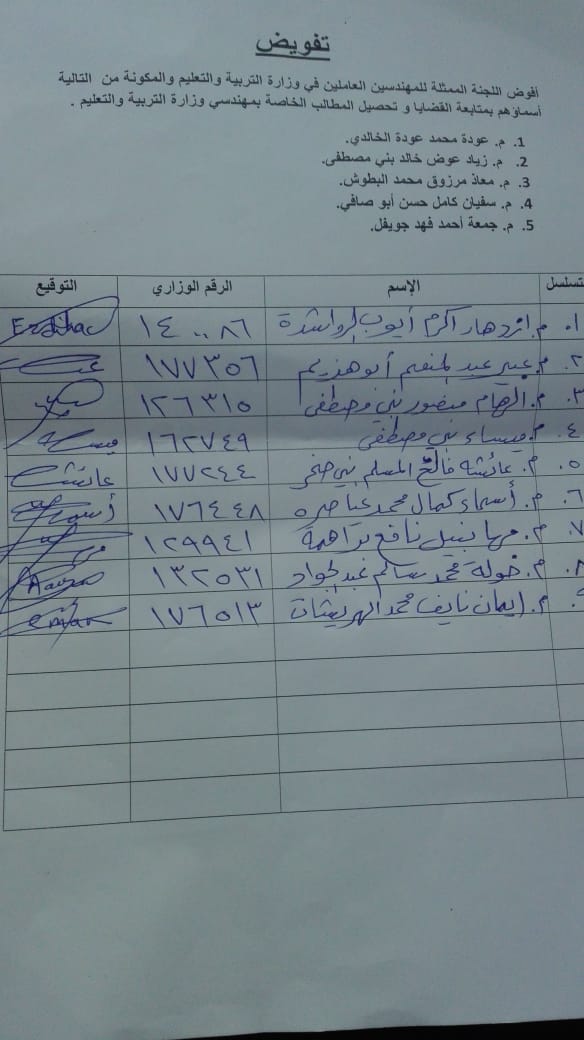 تفويض
أفوض اللجنة الممثلة للمهندسين العاملين في وزارة التربية والتعليم والمكونة من التالية
أسماؤهم بمتابعة القضايا و تحصيل المطالب الخاصة بمهندسي وزارة التربية والتعليم .
1. م. عودة محمد عودة الخالدي.
2. م. زياد عوض خالد بني مصطفى.
3. م. معاذ مرزوق محمد البطوش.
4. م. سفيان كامل حسن أبو صافي.
5. م. جمعة أحمد فهد جويفل.
تسلسل الإسم الرقم الوزاري التوقيع
١. م. ازدهار اكرم أيوب الرواشدة ١٤٠٠٨٦
٢. م. عبير عبد المنعم أبو هزيم ١٧٧٣٥٦
٣. م. الهام منصور بني مصطفى ١٢٦٣١٥
٤. م. ميساء بني مصطفى ١٦٢٧٤٩
٥. م. عائشة فالح المسلم بني صخر ١٧٧٢٤٤ عائشة
٦. م. أسماء كمال محمد عناصره ١٧٦٤٤٨
٧. م. مها نبيل نافع براهمة ١٢٩٩٤١
٨. م. خولة محمد سالم عبد الجواد ١٣٢٥٣١
٩. م. ايمان نايف محمد ١٧٦٥١٣